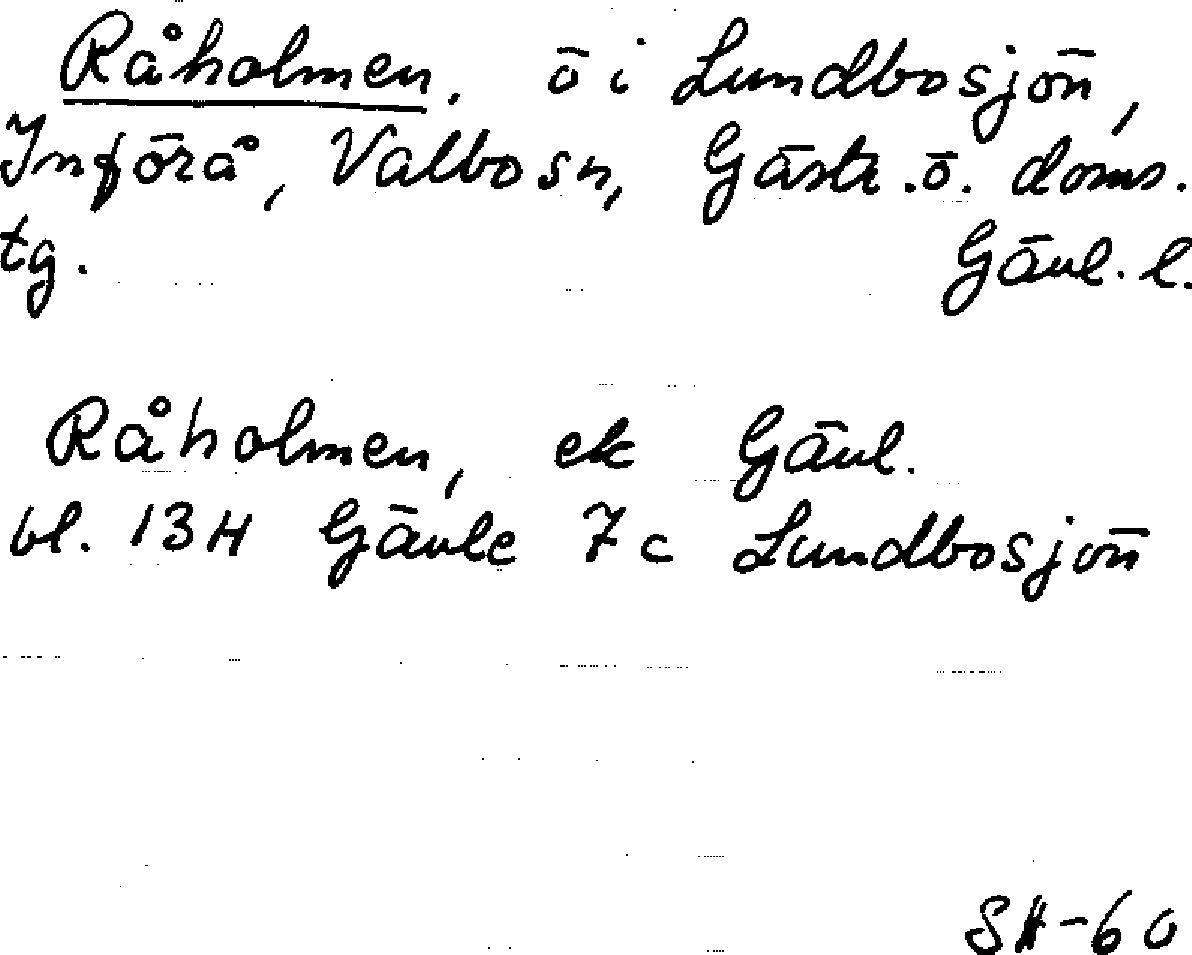 Råholmen. ö i Lundbosjön,
Införå, Valbo sn, Gästr. ö. doms.
tg. Gävl. l.
Råholmen, ek Gävl.
bl. 13H Gävle 7c Lundbosjön
SH-60